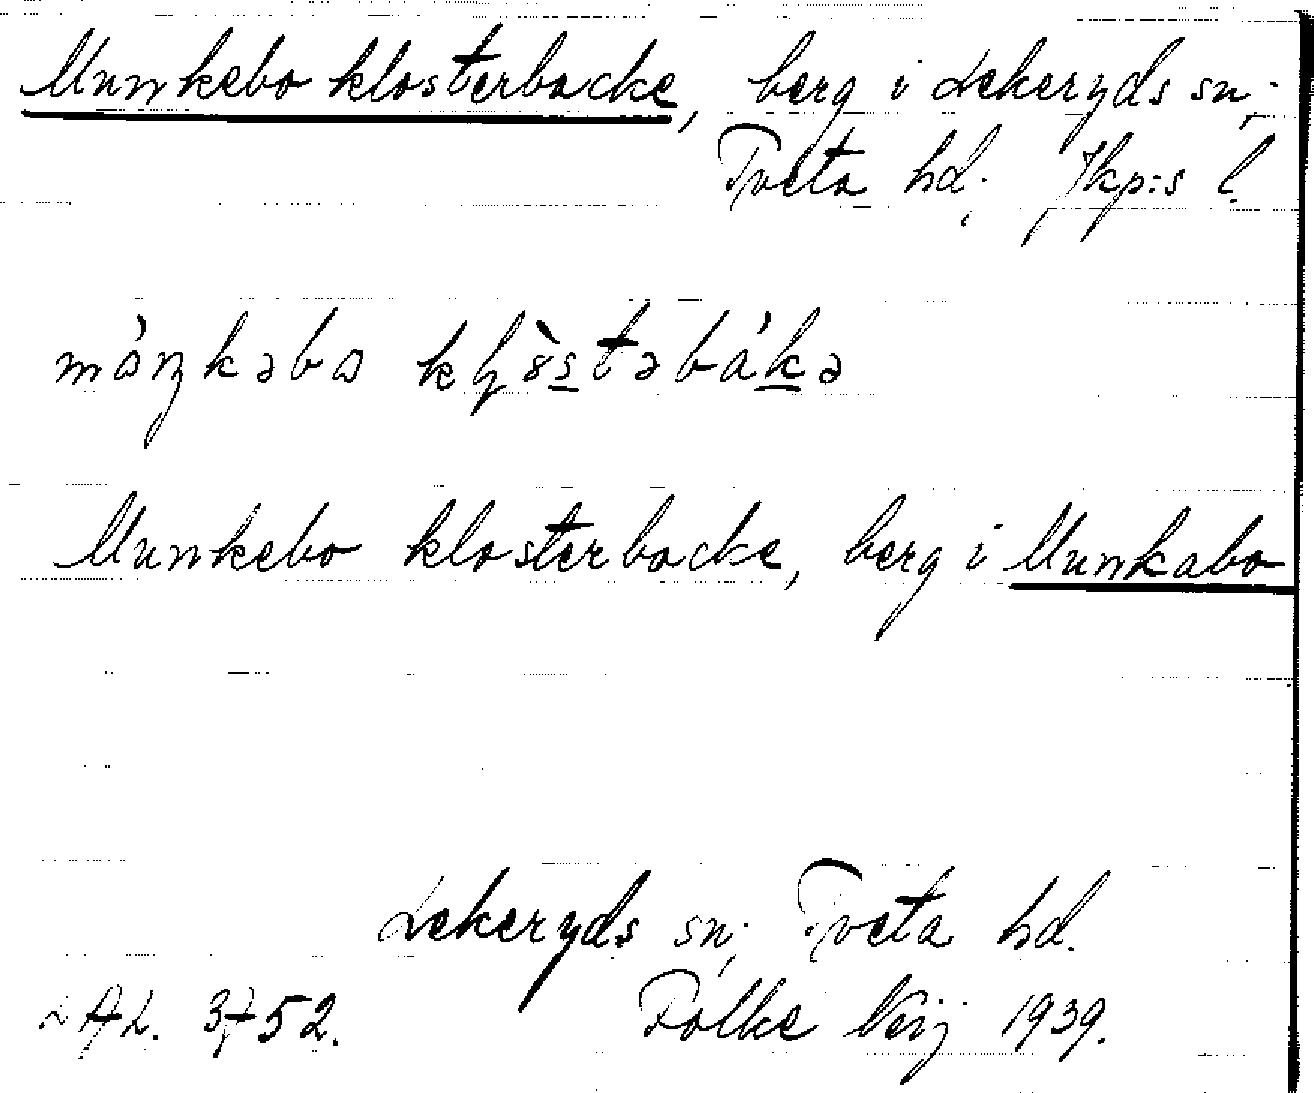 Munkebo klosterbacke, berg i Lekeryds sn,
Tveta hd, Jkp:s l.
månkəbo kl̥òstəbákə
Munkebo klosterbacke, berg i Munkabo
Lekeryds sn, Tveta hd.
LAL. 3752. Folke Neij 1939.